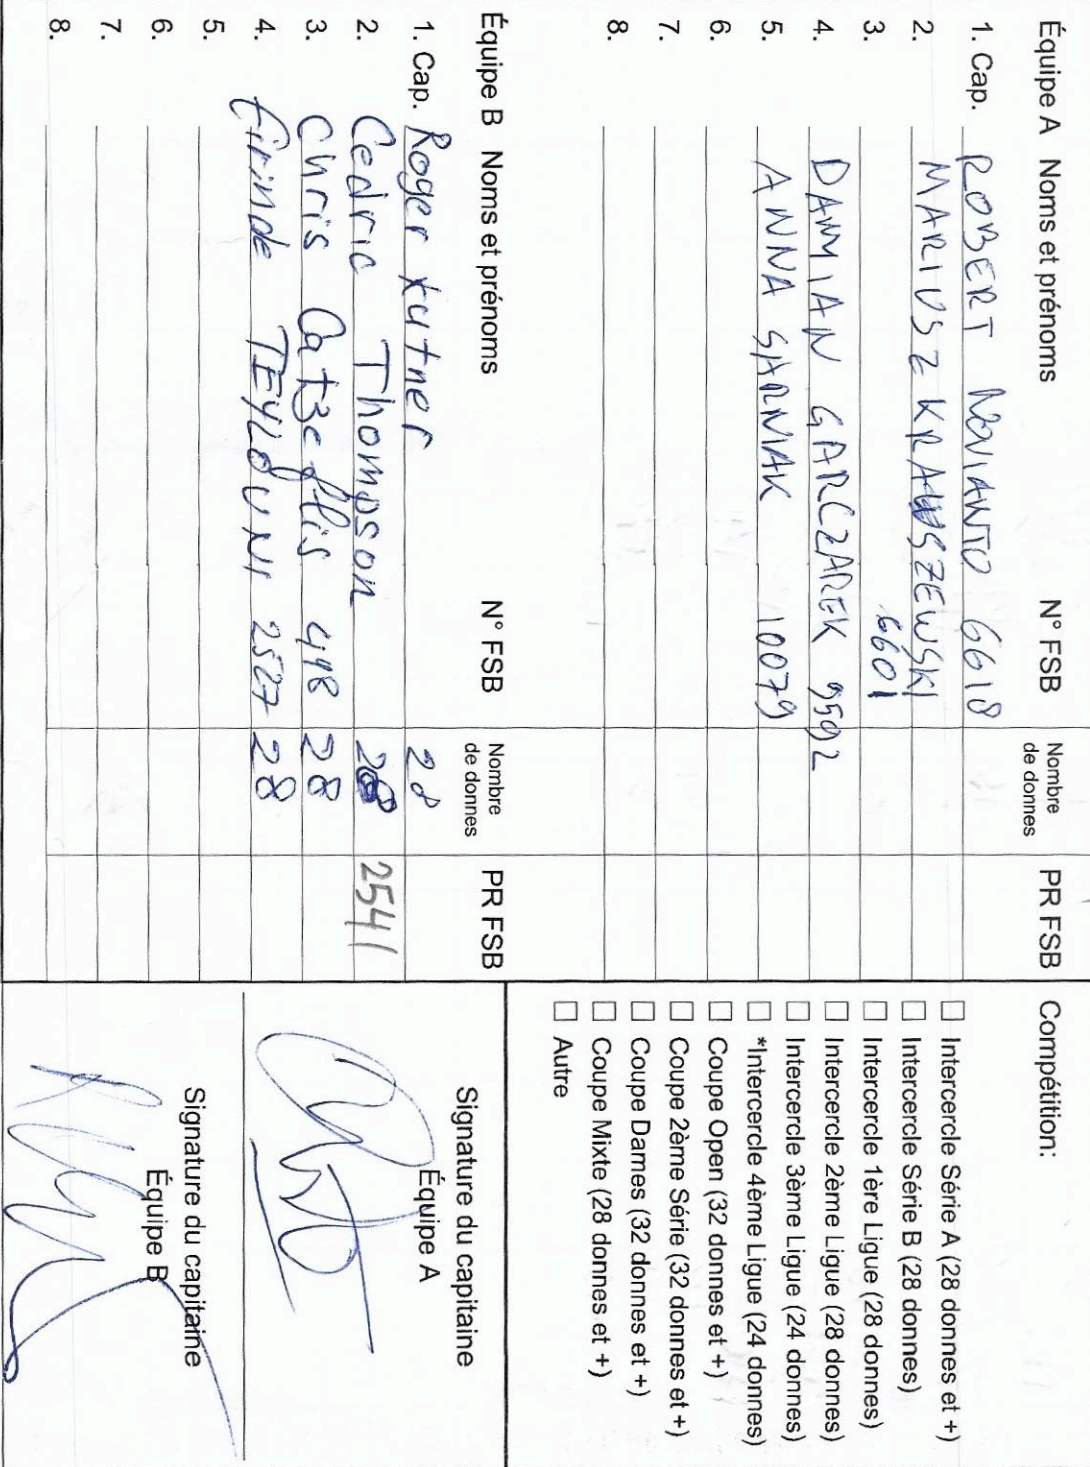 Équipe A Noms et prénoms N° FSB Nombre de donnes PR FSB
1. Cap. ROBERT NOVIANTO 6618
2. MARIUSZ KRAWSZEWSKI
3. 6601
4. DAMIAN GARCZAREK 9592
5. ANNA SARNIAK 10079
6.
7.
8.
Équipe B Noms et prénoms N° FSB Nombre de donnes PR FSB
1. Cap. Roger Kutner 28
2. Cedric Thomson 28 2541
3. Chris Catzeflis 498 28
4. TEYLOUNI 2527 28
5.
6.
7.
8.
Compétition:
☐ Intercercle Série A (28 donnes et +)
☐ Intercercle Série B (28 donnes)
☐ Intercercle 1ère Ligue (28 donnes)
☐ Intercercle 2ème Ligue (28 donnes)
☐ Intercercle 3ème Ligue (24 donnes)
☐ *Intercercle 4ème Ligue (24 donnes)
☐ Coupe Open (32 donnes et +)
☐ Coupe 2ème Série (32 donnes et +)
☐ Coupe Dames (32 donnes et +)
☐ Coupe Mixte (28 donnes et +)
☐ Autre
Signature du capitaine
Équipe A
Signature du capitaine
Équipe B